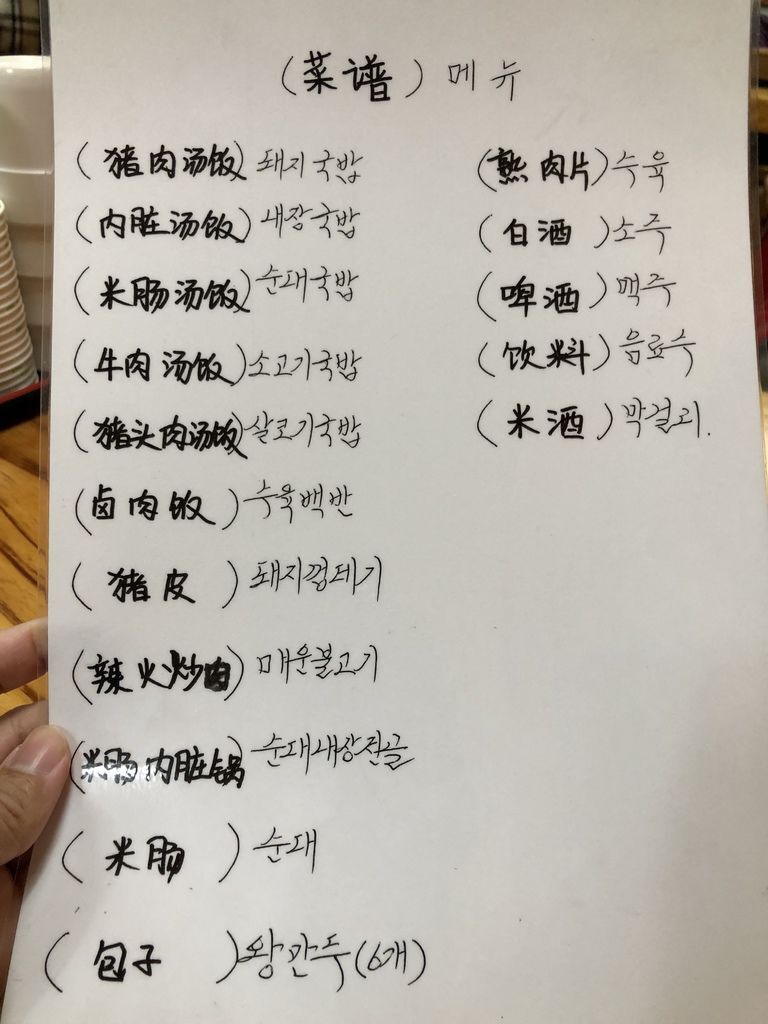 (菜谱) 메뉴
(猪肉汤饭) 돼지국밥
(内脏汤饭) 내장국밥
(米肠汤饭) 순대국밥
(牛肉汤饭) 소고기국밥
(猪头肉汤饭) 살코기국밥
(卤肉饭) 수육백반
(猪皮) 돼지껍데기
(辣火炒肉) 매운불고기
(米肠内脏锅) 순대내장전골
(米肠) 순대
(包子) 왕만두(6개)
(熟肉片) 수육
(白酒) 소주
(啤酒) 맥주
(饮料) 음료수
(米酒) 막걸리.